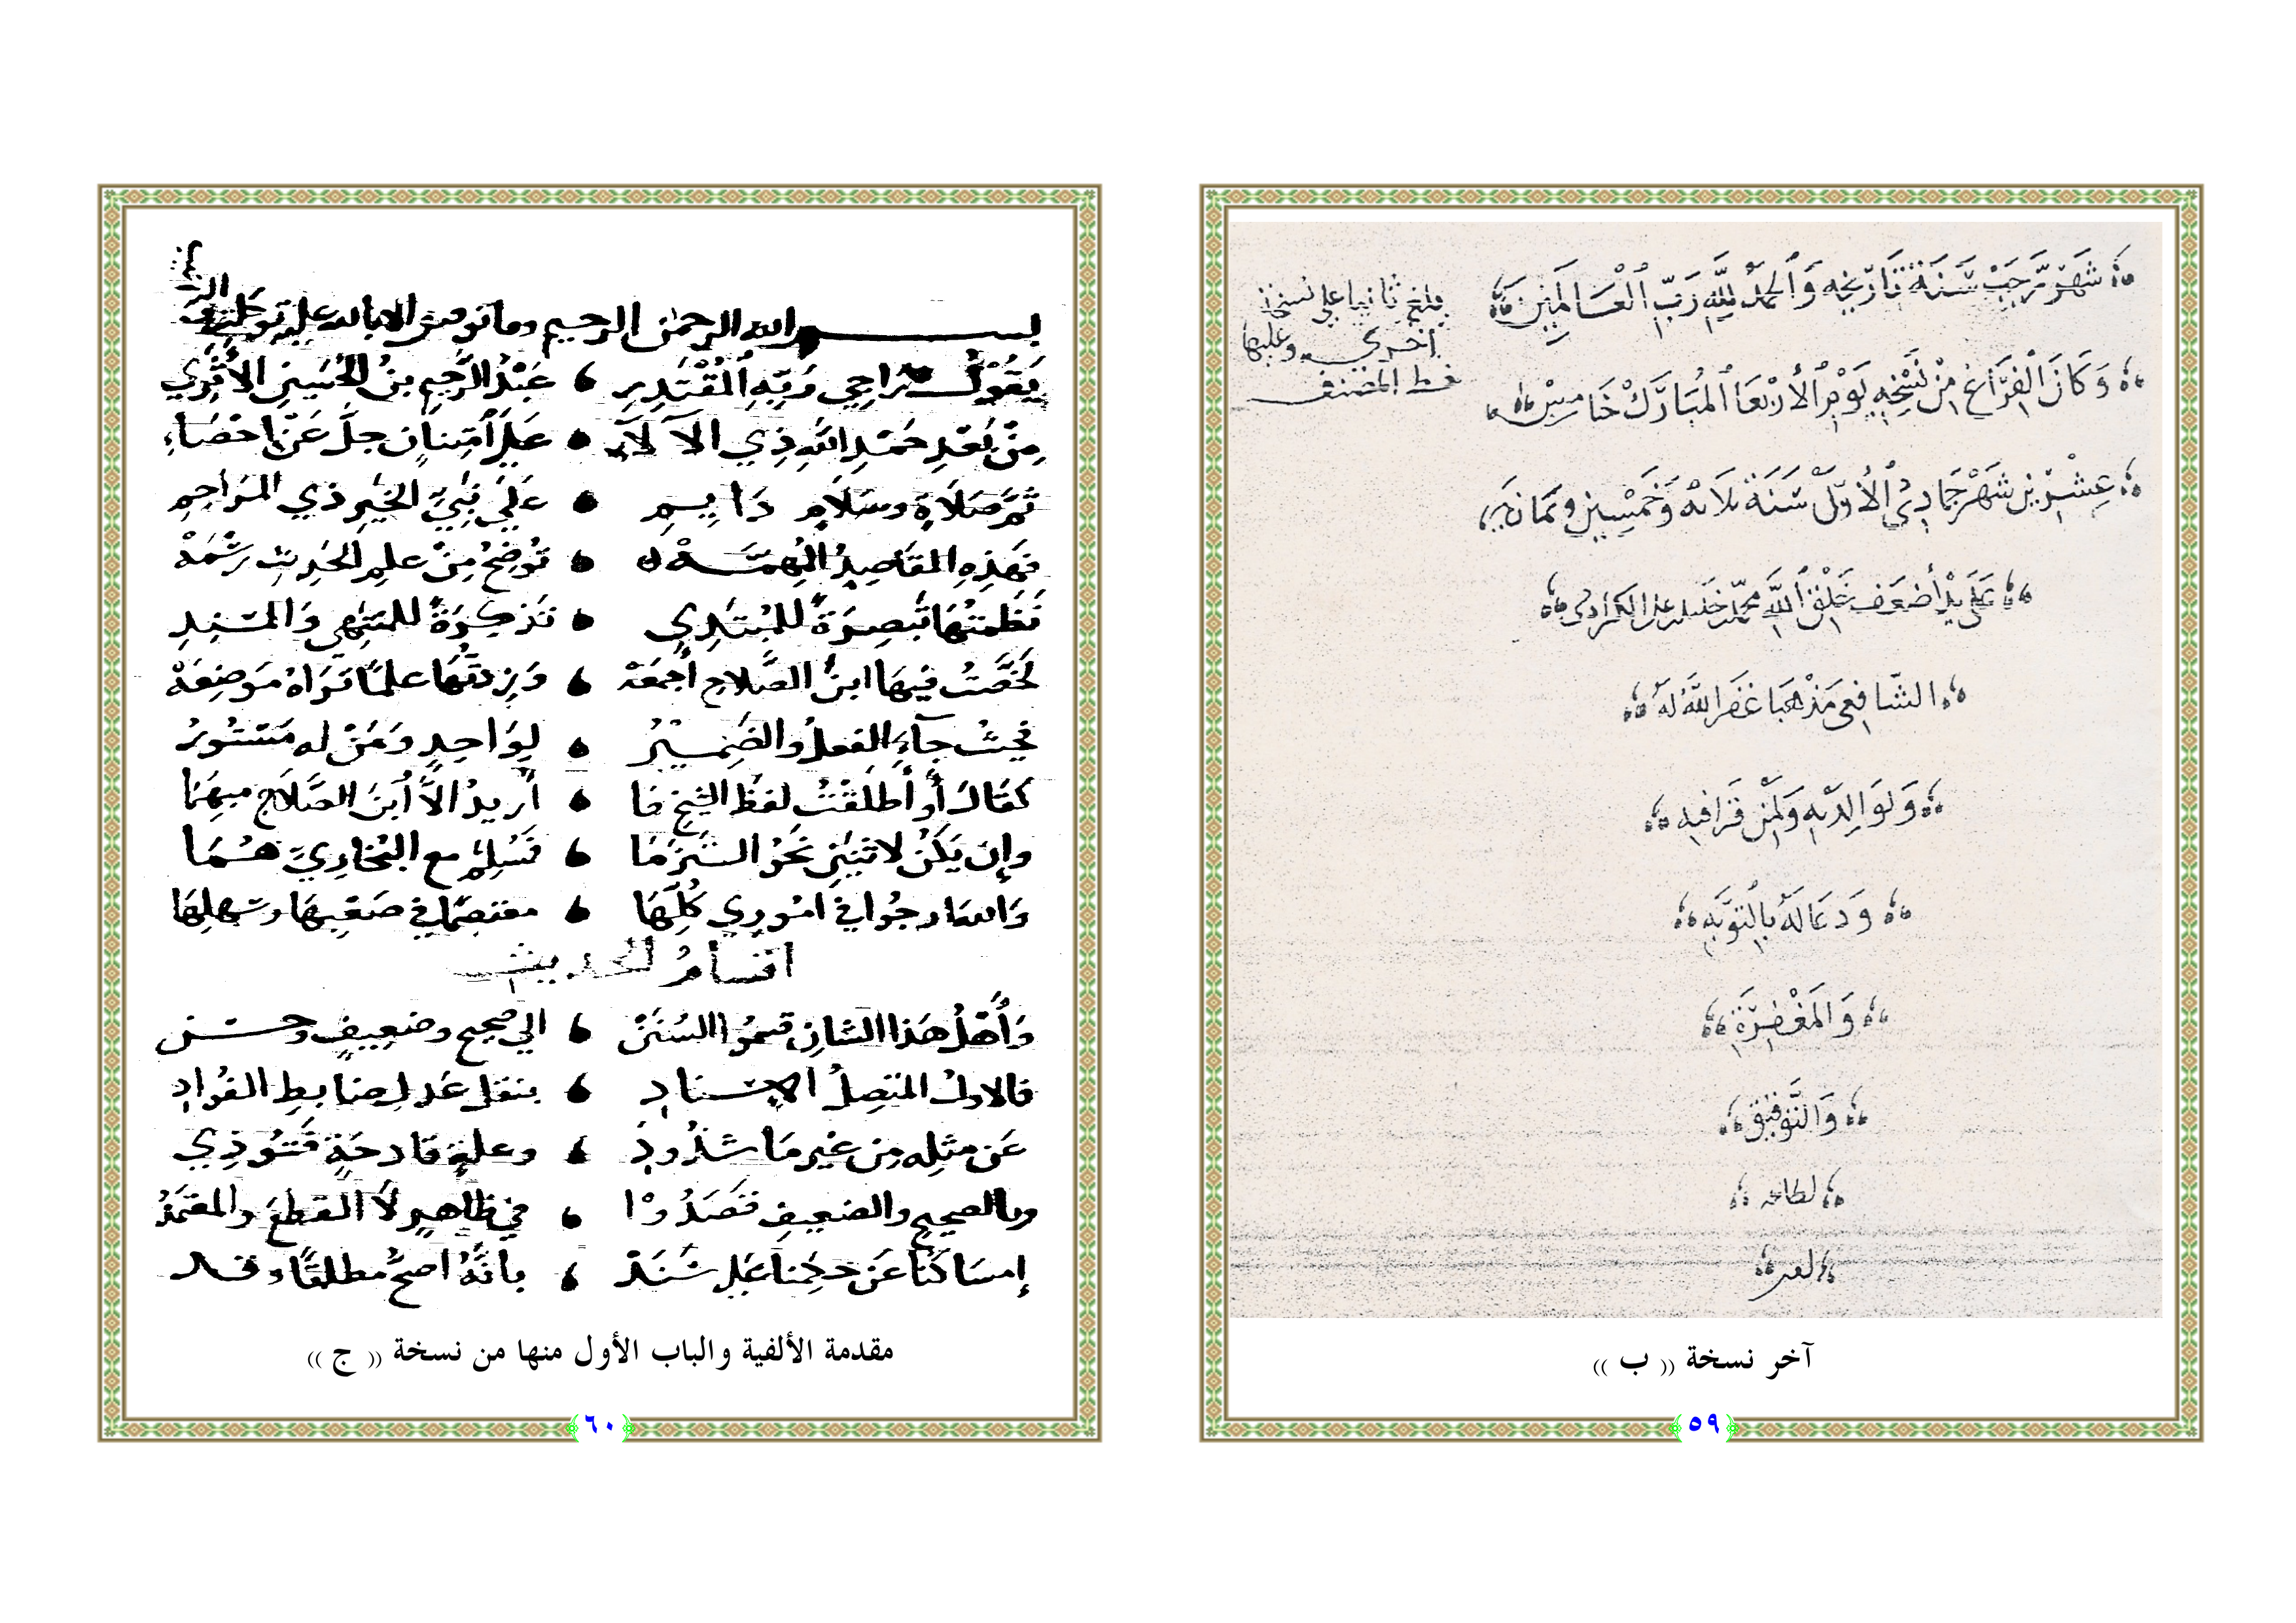 شَهْرِ رَجَبْ سَنَةَ تَارِيخِه وَالحَمْدُ لِلَّهِ رَبِّ الْعَالَمِينَ
بلغ ثانيا على نسخة
اخرى وعليها
خط المصنف
وَكَانَ الْفَرَاغ مِنْ نَسْخِهِ يَوْمِ الْأَرْبِعَا الْمُبَارَكْ خَامِسْ
عِشْرِين شَهْرِ جَمَادِى الْأَوَّلْ سَنَةَ ثلاثه وَخَمْسِين وثمانمايه
عَلَى يَدِ أَضْعَفِ خَلْقِ اللَّهِ محمد خليل
الشَّافِعى مَذْهَبَا غَفَرَ اللَّهُ لَهُ
وَلِوَالِدَيْهِ وَلِمَنْ قَرَا فيه
وَدَعَا لَهُ بِالتَّوْبَهِ
وَالمَغْفِرَةِ
وَالتَّوْفِيق
لطاعه
آخر نسخة (( ب ))
﴿٥٩﴾
بسم الله الرحمن الرحيم وما توفيقي الا بالله عليه توكلت
يَقُولُ رَاجِي رَبِّهِ المُقْتَدِرِ عَبْدُ الرَّحِيمِ بنُ الحُسَينِ الأَثَرِي
مِنْ بَعْدِ حَمْدِ اللهِ ذِي الآلَاءِ عَلَى امْتِنَانٍ جلَّ عَنْ احْصَاءِ
ثُمَّ صَلَاةٍ وسَلَامٍ دَايِمِ عَلَى نَبِيِّ الخَيْرِ ذي المَرَاحِمِ
فَهَذِهِ المَقَاصِدُ المُهِمَّهْ تُوضِحُ مِنْ علمِ الحَدِيثِ رَسْمَهْ
نَظَمْتُهَا تَبْصِرَةً للمُبْتَدِي تَذْكِرَةً للمُنْتَهِي وَالمُسْنِدِ
لَخَّصْتُ فِيهَا ابنَ الصَّلَاحِ أَجْمَعَهْ وَزِدْتُهَا عِلمًا تَرَاهُ مَوْضِعَهْ
فَحَيْثُ جَآءَ الفعلُ والضَّمِيْرُ لِوَاحِدٍ وَمَنْ له مَسْتُورُ
كَقَالَ أَو أَطْلَقْتُ لفظَ الشيخِ مَا أُرِيدُ الاَّ ابنَ الصَّلَاحِ مبهَمَا
وإن يَكُنْ لاثْنَيْنِ نَحْوُ التَزَمَا فَمُسْلِمٌ مع البُخَارِيِّ هُمَا
وَاللهَ ارجُوا في امُوري كُلِّهَا معتصمًا في صَعْبِهَا وسَهلِهَا
اقسَامُ الحديث
وَأَهْلُ هَذَا الشانِ قسمُوا السُنَنْ الي صحيحٍ وضعيفٍ وحسن
فالاولُ المتصِلُ الاسنادِ بنقلِ عَدلٍ ضابطِ الفُوادِ
عَن مثلِه مِن غيْرِ مَا شذُوذِ وعلةٍ قادحَةٍ فَتُوذِي
وبالصحيحِ والضعيفِ قَصَدُوْا في ظاهرٍ لَا القطعَ والمعْتَمَدُ
إمسَاكُنَا عَن حكمِنَا عَلى سَنَدْ بِانَّهُ اصحُّ مطلقًا وقد
مقدمة الألفية والباب الأول منها من نسخة (( ج ))
﴿٦٠﴾